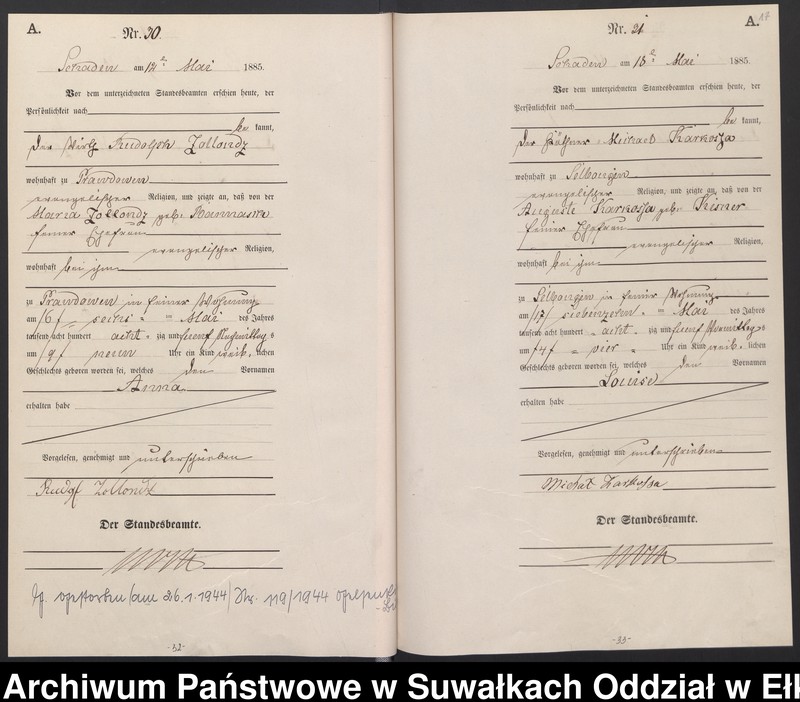 A.
Nr. 30.
Schaden am 12 Mai 1885.
Vor dem unterzeichneten Standesbeamten erschien heute, der
Persönlichkeit nach
be kannt,
der Wirth Rudolph Zollondz
wohnhaft zu Prawdowen
evangelischer Religion, und zeigte an, daß von der
Maria Zollondz geb.
seiner Ehefrau
evangelischer Religion,
wohnhaft bei ihm
zu Prawdowen in seiner Wohnung
am /6/ sechs Mai des Jahres
tausend acht hundert acht zig und fuenf Nachmittags
um /9/ neun Uhr ein Kind weib lichen
Geschlechts geboren worden sei, welches den Vornamen
Anna
erhalten habe
Vorgelesen, genehmigt und unterschrieben
Zollondz
Der Standesbeamte.
gestorben am 26.1.1944 / Nr. 119/1944
-32-
A. 17
Nr. 31
Schaden am 18 Mai 1885.
Vor dem unterzeichneten Standesbeamten erschien heute, der
Persönlichkeit nach
be kannt,
der Käthner Michael Karkosza
wohnhaft zu Selbongen
evangelischer Religion, und zeigte an, daß von der
Auguste Karkosza geb.
seiner Ehefrau
evangelischer Religion,
wohnhaft bei ihm
zu Selbongen in seiner Wohnung
am /17/ siebenzehn Mai des Jahres
tausend acht hundert acht zig und fuenf Vormittags
um /4/ vier Uhr ein Kind weib lichen
Geschlechts geboren worden sei, welches den Vornamen
Louise
erhalten habe
Vorgelesen, genehmigt und unterschrieben
Michał Karkossa
Der Standesbeamte.
-33-
Archiwum Państwowe w Suwałkach Oddział w Ełk